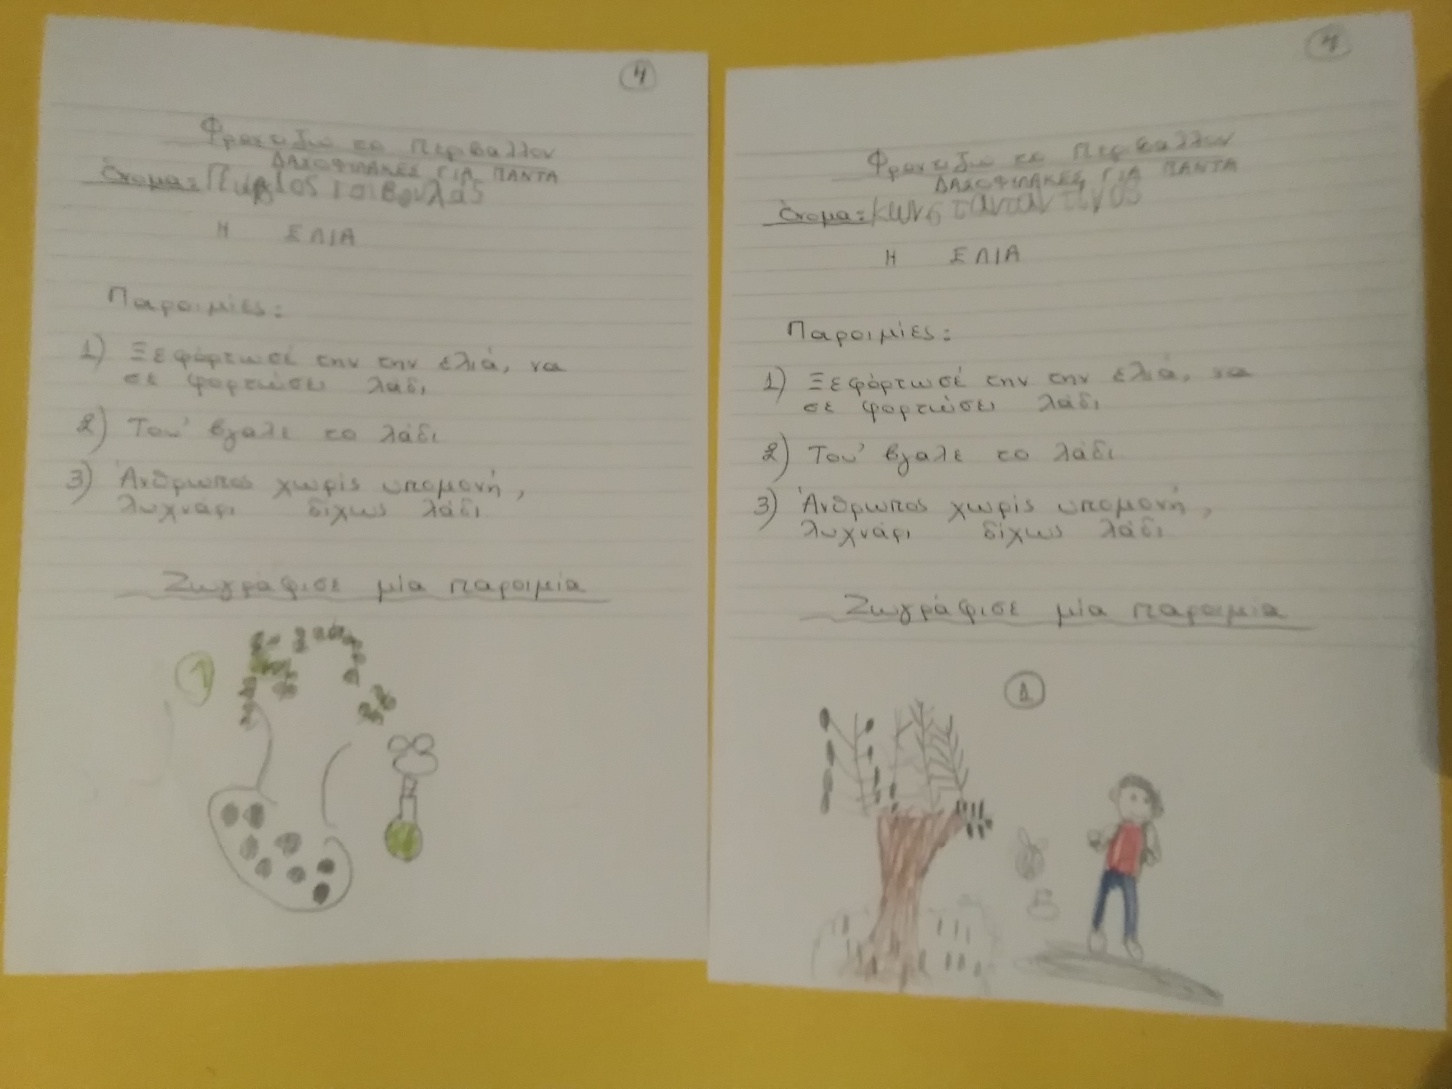 4
Φροντίζω το Περιβάλλον
ΔΑΣΟΦΥΛΑΚΕΣ ΓΙΑ ΠΑΝΤΑ
Όνομα:
Η ΕΛΙΑ
Παροιμίες:
1) Ξεφόρτωσέ την την ελιά, να
σε φορτώσει λάδι
2) Του' βγαλε το λάδι
3) Άνθρωπος χωρίς υπομονή,
λυχνάρι δίχως λάδι
Ζωγράφισε μία παροιμία
1
4
Φροντίζω το Περιβάλλον
ΔΑΣΟΦΥΛΑΚΕΣ ΓΙΑ ΠΑΝΤΑ
Όνομα: Κωνσταντίνος
Η ΕΛΙΑ
Παροιμίες:
1) Ξεφόρτωσέ την την ελιά, να
σε φορτώσει λάδι
2) Του' βγαλε το λάδι
3) Άνθρωπος χωρίς υπομονή,
λυχνάρι δίχως λάδι
Ζωγράφισε μία παροιμία
1